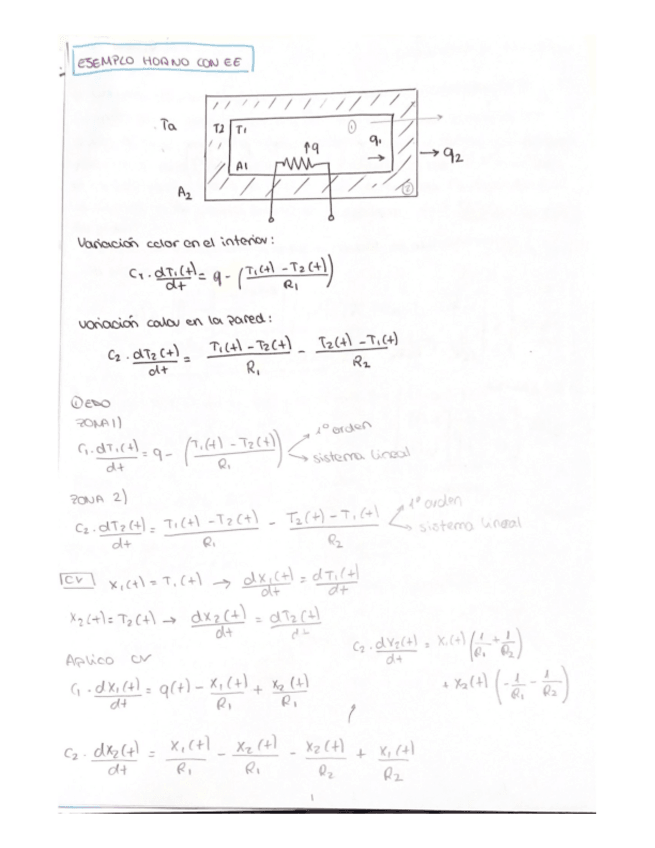 EJEMPLO HORNO CON EE
Ta
T2 T1
①
q1
↑q
→ q2
A1
A2
②
Variación calor en el interior:
C1 · dT1(t)/dt = q - (T1(t) - T2(t)/R1)
Variación calor en la pared:
C2 · dT2(t)/dt = T1(t) - T2(t)/R1 - T2(t) - T1(t)/R2
① EDO
ZONA 1)
C1 · dT1(t)/dt = q - (T1(t) - T2(t)/R1) → 1º orden
→ sistema lineal
ZONA 2)
C2 · dT2(t)/dt = T1(t) - T2(t)/R1 - T2(t) - T1(t)/R2 → 1º orden
→ sistema lineal
CV x1(t) = T1(t) → dx1(t)/dt = dT1(t)/dt
x2(t) = T2(t) → dx2(t)/dt = dT2(t)/dt
Aplico CV
C1 · dx1(t)/dt = q(t) - x1(t)/R1 + x2(t)/R1
C2 · dx2(t)/dt = x1(t) (1/R1 + 1/R2)
+ x2(t) (-1/R1 - 1/R2)
C2 · dx2(t)/dt = x1(t)/R1 - x2(t)/R1 - x2(t)/R2 + x1(t)/R2
1